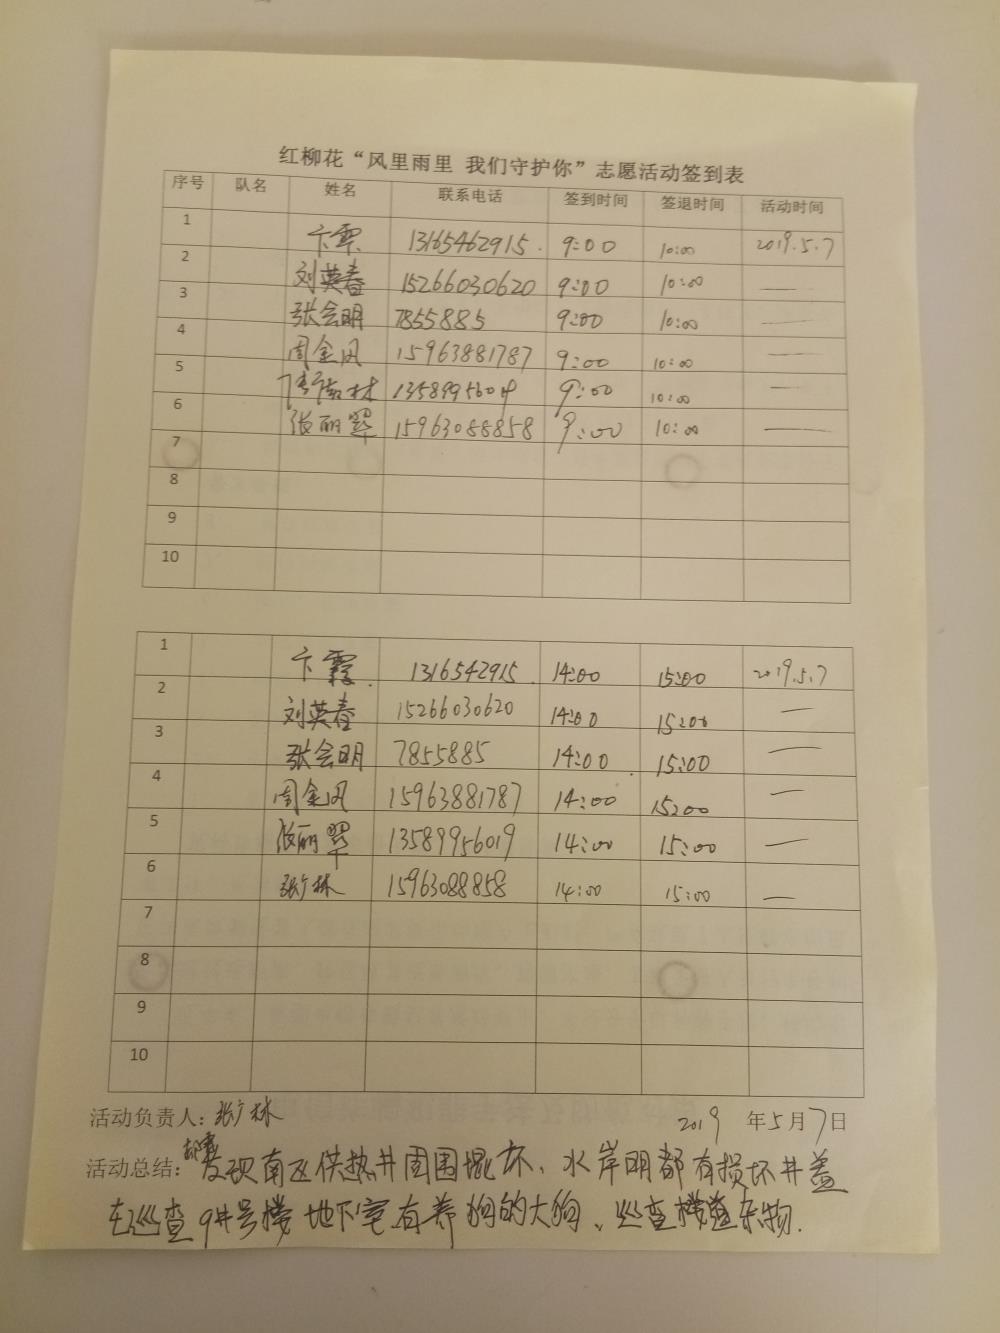 红柳花“风里雨里 我们守护你”志愿活动签到表
序号 队名 姓名 联系电话 签到时间 签退时间 活动时间
1 卞霞 13165462915. 9:00 10:00 2019.5.7
2 刘英春 15266030620 9:00 10:00 —
3 张会明 7855885 9:00 10:00 —
4 周金凤 15963881787 9:00 10:00 —
5 林 1358995601 9:00 10:00 —
6 张丽翠 15963088858 9:00 10:00 —
7
8
9
10
1 卞霞. 1316542915 14:00 15:00 2019.5.7
2 刘英春 15266030620 14:00 15:00 —
3 张会明 7855885 14:00 15:00 —
4 周金凤 15963881787 14:00 15:00 —
5 张丽翠 13589956019 14:00 15:00 —
6 张广林 15963088858 14:00 15:00 —
7
8
9
10
活动负责人:张广林 2019 年5月7日
活动总结: 发现南区供热井周围塌坏、水岸明都有损坏井盖
在巡查9#号楼地下室有养狗的大狗、巡查楼道杂物.